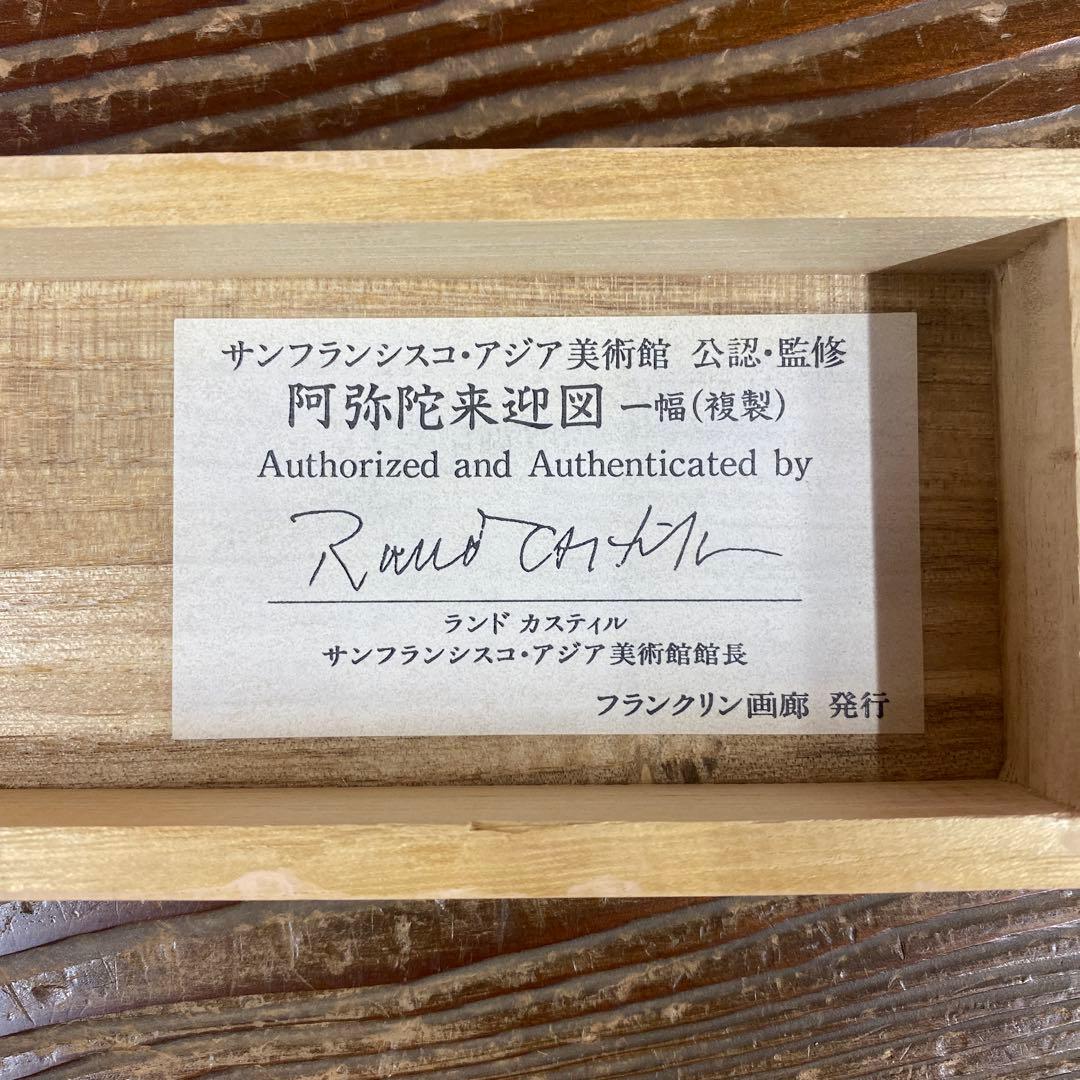 サンフランシスコ・アジア美術館 公認・監修
阿弥陀来迎図 一幅(複製)
Authorized and Authenticated by
Rand Castile
ランド カスティル
サンフランシスコ・アジア美術館館長
フランクリン画廊 発行